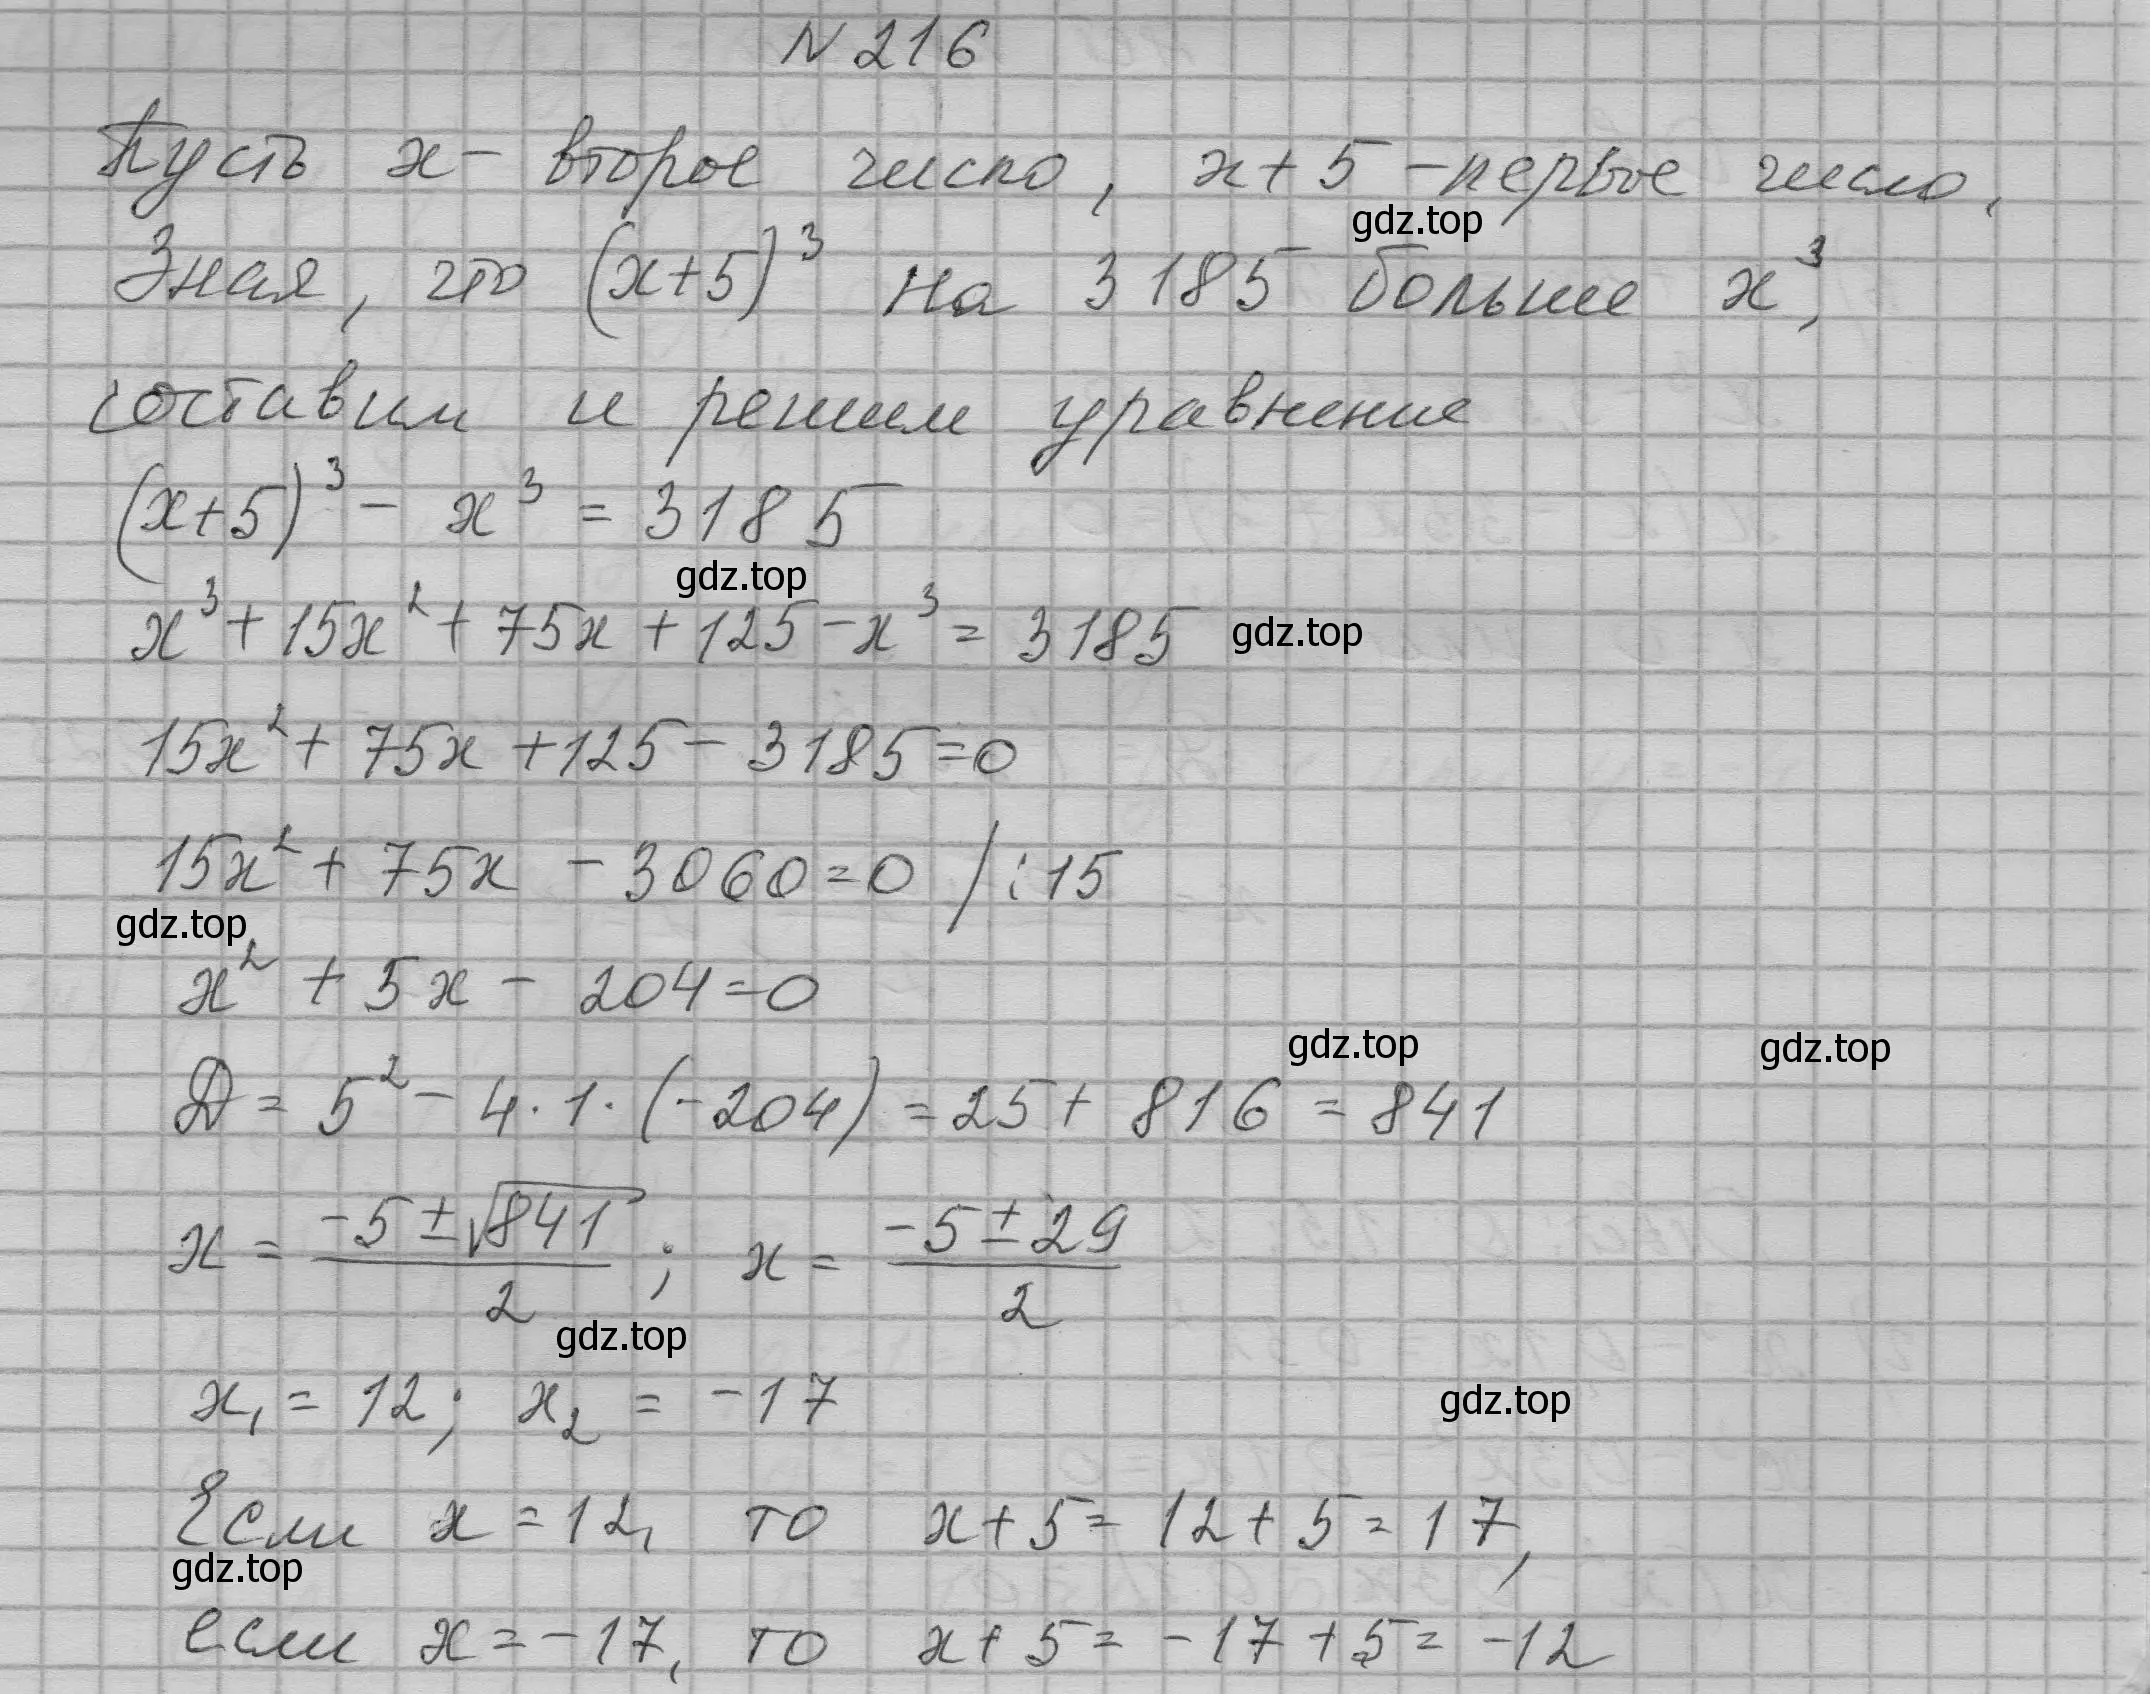 N 216
Пусть x – второе число, x+5 – первое число.
gdz.top
Зная, что (x+5)³ на 3185 больше x³,
составим и решим уравнение
(x+5)³ – x³ = 3185
gdz.top
x³ + 15x² + 75x + 125 – x³ = 3185
gdz.top
15x² + 75x + 125 – 3185 = 0
15x² + 75x – 3060 = 0 / : 15
gdz.top
x² + 5x – 204 = 0
gdz.top
gdz.top
D = 5² – 4 · 1 · (–204) = 25 + 816 = 841
x = (–5 ± √841)/2 ; x = (–5 ± 29)/2
gdz.top
x₁ = 12; x₂ = –17
gdz.top
Если x = 12, то x + 5 = 12 + 5 = 17,
gdz.top
если x = –17, то x + 5 = –17 + 5 = –12